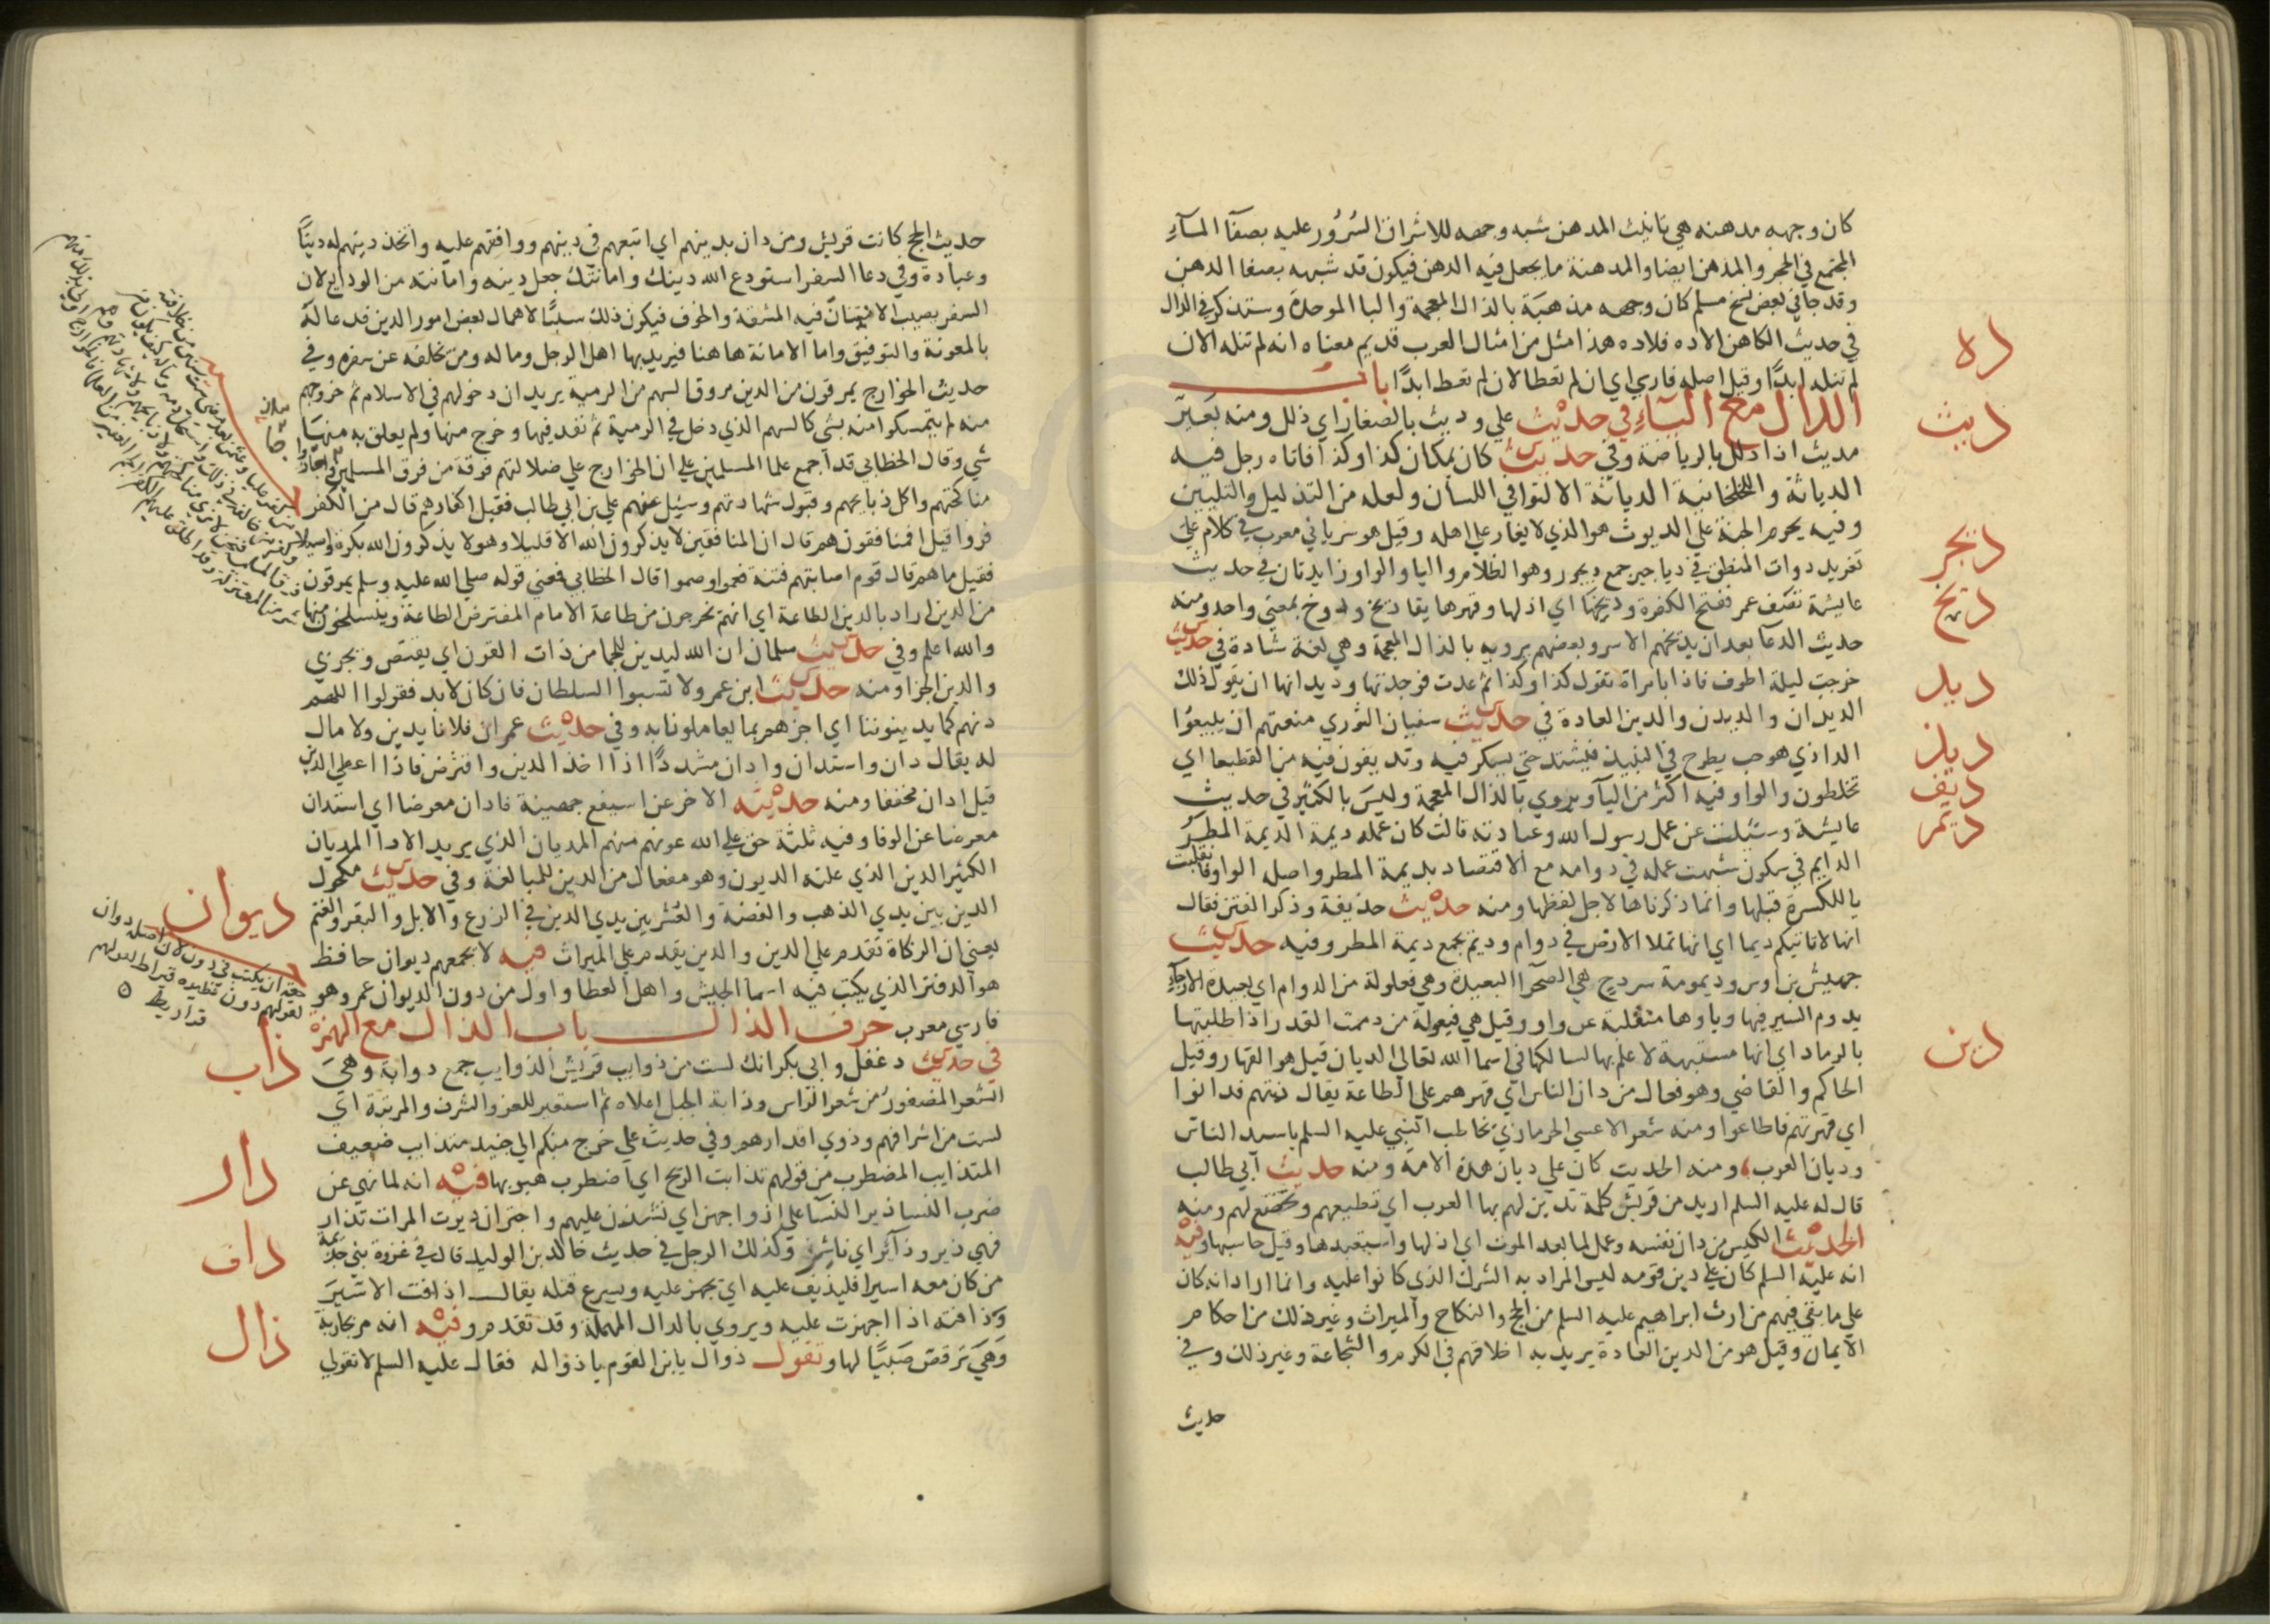 كان وجهه مدهنه هي تانيث المدهن شبه وجهه للاشراق السُرُور عليه بصفآ المآءِ
المجتمع في الحجر والمدهن ايضا والمدهنة ما يجعل فيه الدهن فيكون قد شبهه بصفا الدهن
وقد جا في بعض نسخ مسلم كان وجهه مذهبَة بالذال المعجمة والبا الموحدة وستذكر في الذال
ده
في حديث الكاهن الاده فلاده هذا مثل من امثال العرب قديم معناه انه لم تنله الان
لم تنله ابدًا وقيل اصله فارسي اي ان لم تعط الان لم تعط ابدًا باب
ديث
الدال مع اليآءِ في حديث علي وديث بالصغار اي ذلل ومنه بَعيرٌ
مديث اذا ذلل بالرياضة وفي حديث كان بمكان كذا وكذا فاتاه رجل فيه
الدياثة واللخلخانية الدياثة الالتوا في اللسان ولعله من التذليل والتليين
وفيه يحرم الجنة علي الديوث هو الذي لا يغار علي اهله وقيل هو سرياني معرب في كلام علي
ديجر
تغريد دوات المنطق في دياجير جمع ديجور وهو الظلام واليا والواو زايدتان في حديث
ديخ
عايشة تصف عمر ففتح الكفرة وديخها اي اذلها وقهرها يقا ديخ ودوخ بمعني واحد ومنه
حديث الدعآ بعد ان يديخهم الاسر وبعضهم يرويه بالذال المعجمة وهي لغة شاذة في حديث
ديد
خرجت ليلة اطوف فاذا بامراة تقول كذا وكذا ثم عدت فوجدتها وديدانها ان يقول ذلك
الديدان والديدن والدين العادة في حديث سفيان الثوري منعتهم ان يبيعوا
ديذ
الداذي هو حب يطرح في النبيذ فيشتد حتي يسكر فيه وتديفون فيه من القطيعا اي
ديف
تخلطون والواو فيه اكثر من اليآ ويروي بالذال المعجمة وليس بالكثير في حديث
ديم
عايشة وسئلت عن عمل رسول الله وعبادته قالت كان عمله ديمة الديمة المطر
الدايم في سكون شبهت عمله في دوامه مع الاقتصاد بديمة المطر واصله الواو فانقلبت
يا للكسرة قبلها وانما ذكرناها لاجل لفظها ومنه حديث حذيفة وذكر الفتن فقال
انها لاتاتيكم ديما اي انها تملا الارض في دوام وديم جمع ديمة المطر وفيه حديث
جهيش بن اوس وديمومة سردج هي الصحرا البعيدة وهي فعلولة من الدوام اي بعيدة الارجآءِ
يدوم السير فيها وياوها منقلبة عن واو وقيل هي فيعولة من دممت القدر اذا طلبتها
دين
بالرماد اي انها مشتبهة لا علم بها لسالكها في اسما الله تعالي الديان قيل هو القهار وقيل
الحاكم والقاضي وهو فعال من دان الناس اي قهرهم علي الطاعة يقال دنتهم فدانوا
اي قهرتهم فاطاعوا ومنه شعر الاعشي الحرمازي يخاطب النبي عليه السلم يا سيد الناس
وديان العرب ومنه الحديث كان علي ديان هذه الامة ومنه حديث ابي طالب
قال له عليه السلم اريد من قريش كلمة تدين لهم بها العرب اي تطيعهم وتخضع لهم ومنه
الحديث الكيس من دان نفسه وعمل لما بعد الموت اي اذلها واستعبدها وقيل حاسبها وفيه
انه عليه السلم كان علي دين قومه ليس المراد به الشرك الذي كانوا عليه وانما اراد انه كان
علي ما بقي فيهم من ارث ابراهيم عليه السلم من الحج والنكاح والميراث وغير ذلك من احكام
الايمان وقيل هو من الدين العادة يريد به اخلاقهم في الكرم والشجاعة وغير ذلك وفي
حديث
حديث الحج كانت قريش ومن دان بدينهم اي اتبعهم في دينهم ووافقهم عليه واتخذ دينهم له دينًا
وعبادة وفي دعا السفر استودع الله دينك وامانتك جعل دينه وامانته من الودايع لان
السفر يصيب الانسان فيه المشقة والخوف فيكون ذلك سببًا لاهمال بعض امور الدين فدعا له
بالمعونة والتوفيق واما الامانة هاهنا فيريد بها اهل الرجل وماله ومن تخلفه عن سفره وفي
حديث الخوارج يمرقون من الدين مروق السهم من الرمية يريد ان دخولهم في الاسلام ثم خروجهم
منه لم يتمسكوا منه بشي كالسهم الذي دخل في الرمية ثم نفد فيها وخرج منها ولم يعلق به منها
شي وقال الخطابي قد اجمع علما المسلمين علي ان الخوارج علي ضلالتهم فرقة من فرق المسلمين واجازوا
مناكحتهم واكل ذبايحهم وقبول شهادتهم وسئيل عنهم علي بن ابي طالب فقيل اكفار هم قال من الكفر
فروا قيل افمنافقون هم قال ان المنافقين لا يذكرون الله الا قليلا وهولا يذكرون الله بكرة واصيلا
فقيل ما هم قال قوم اصابتهم فتنة فعموا وصموا قال الخطابي فعني قوله صلي الله عليه وسلم يمرقون
من الدين اراد بالدين الطاعة اي انهم يخرجون من طاعة الامام المفترض الطاعة وينسلخون منها
والله اعلم وفي حديث سلمان ان الله ليدين للجما من ذات القرن اي يقتص ويجزي
والدين الجزا ومنه حديث ابن عمر ولا تسبوا السلطان فان كان لابد فقولوا اللهم
دنهم كما يدينوننا اي اجزهم بما يعاملونا به وفي حديث عمر ان فلانا يدين ولا مال
له يقال دان واستدان وادان مشددًا اذا اخذ الدين واقترض فاذا اعطي الدين
قيل ادان مخففا ومنه حديثه الاخر عن اسيفع جهينة فادان معرضا اي استدان
معرضا عن الوفا وفيه ثلثة حق علي الله عونهم منهم المديان الذي يريد الادا المديان
الكثير الدين الذي علته الديون وهو مفعال من الدين للمبالغة وفي حديث مكحول
الدين بين يدي الذهب والفضة والعُشر بين يدي الدين في الزرع والابل والبقر والغنم
ديوان
يعني ان الزكاة تقدم علي الدين والدين يقدم علي الميراث فيه لا يجمعهم ديوان حافظ
هو الدفتر الذي يكتب فيه اسما الجيش واهل العطا واول من دون الديوان عمر وهو
حقه ان يكتب في دون لان اصله دوان
لقولهم دون نظيره قيراط لقولهم
قراريط
فارسي معرب حرف الذال باب الذال مع الهمزة
ذاب
في حديث دغفل وابي بكر انك لست من ذوايب قريش الذوايب جمع ذوابة وهي
الشعر المضفور من شعر الراس وذابة الجبل اعلاه ثم استعير للعز والشرف والمرتبة اي
لست من اشرافهم وذوي اقدارهم وفي حديث علي خرج منكم الي جنيد متذايب ضعيف
ذار
المتذايب المضطرب من قولهم تذابت الريح اي اضطرب هبوبها فيه انه لما نهي عن
ضرب النسا ذير النسآ علي ازواجهن اي نشزن عليهم واجتران ذيرت المراة تذار
ذاف
فهي ذير وذآئر اي ناشز وكذلك الرجل في حديث خالد بن الوليد قال في غزوة بني جذيمة
من كان معه اسيرا فليذيف عليه اي يجهز عليه ويسرع قتله يقال اذافت الاسير
ذال
وذافته اذا اجهزت عليه ويروي بالدال المهملة وقد تقدم وفيه انه مر بجارية
وهي ترقص صَبيًا لها وتقول ذوال يا بن القوم يا ذواله فقال عليه السلم لا تقولي